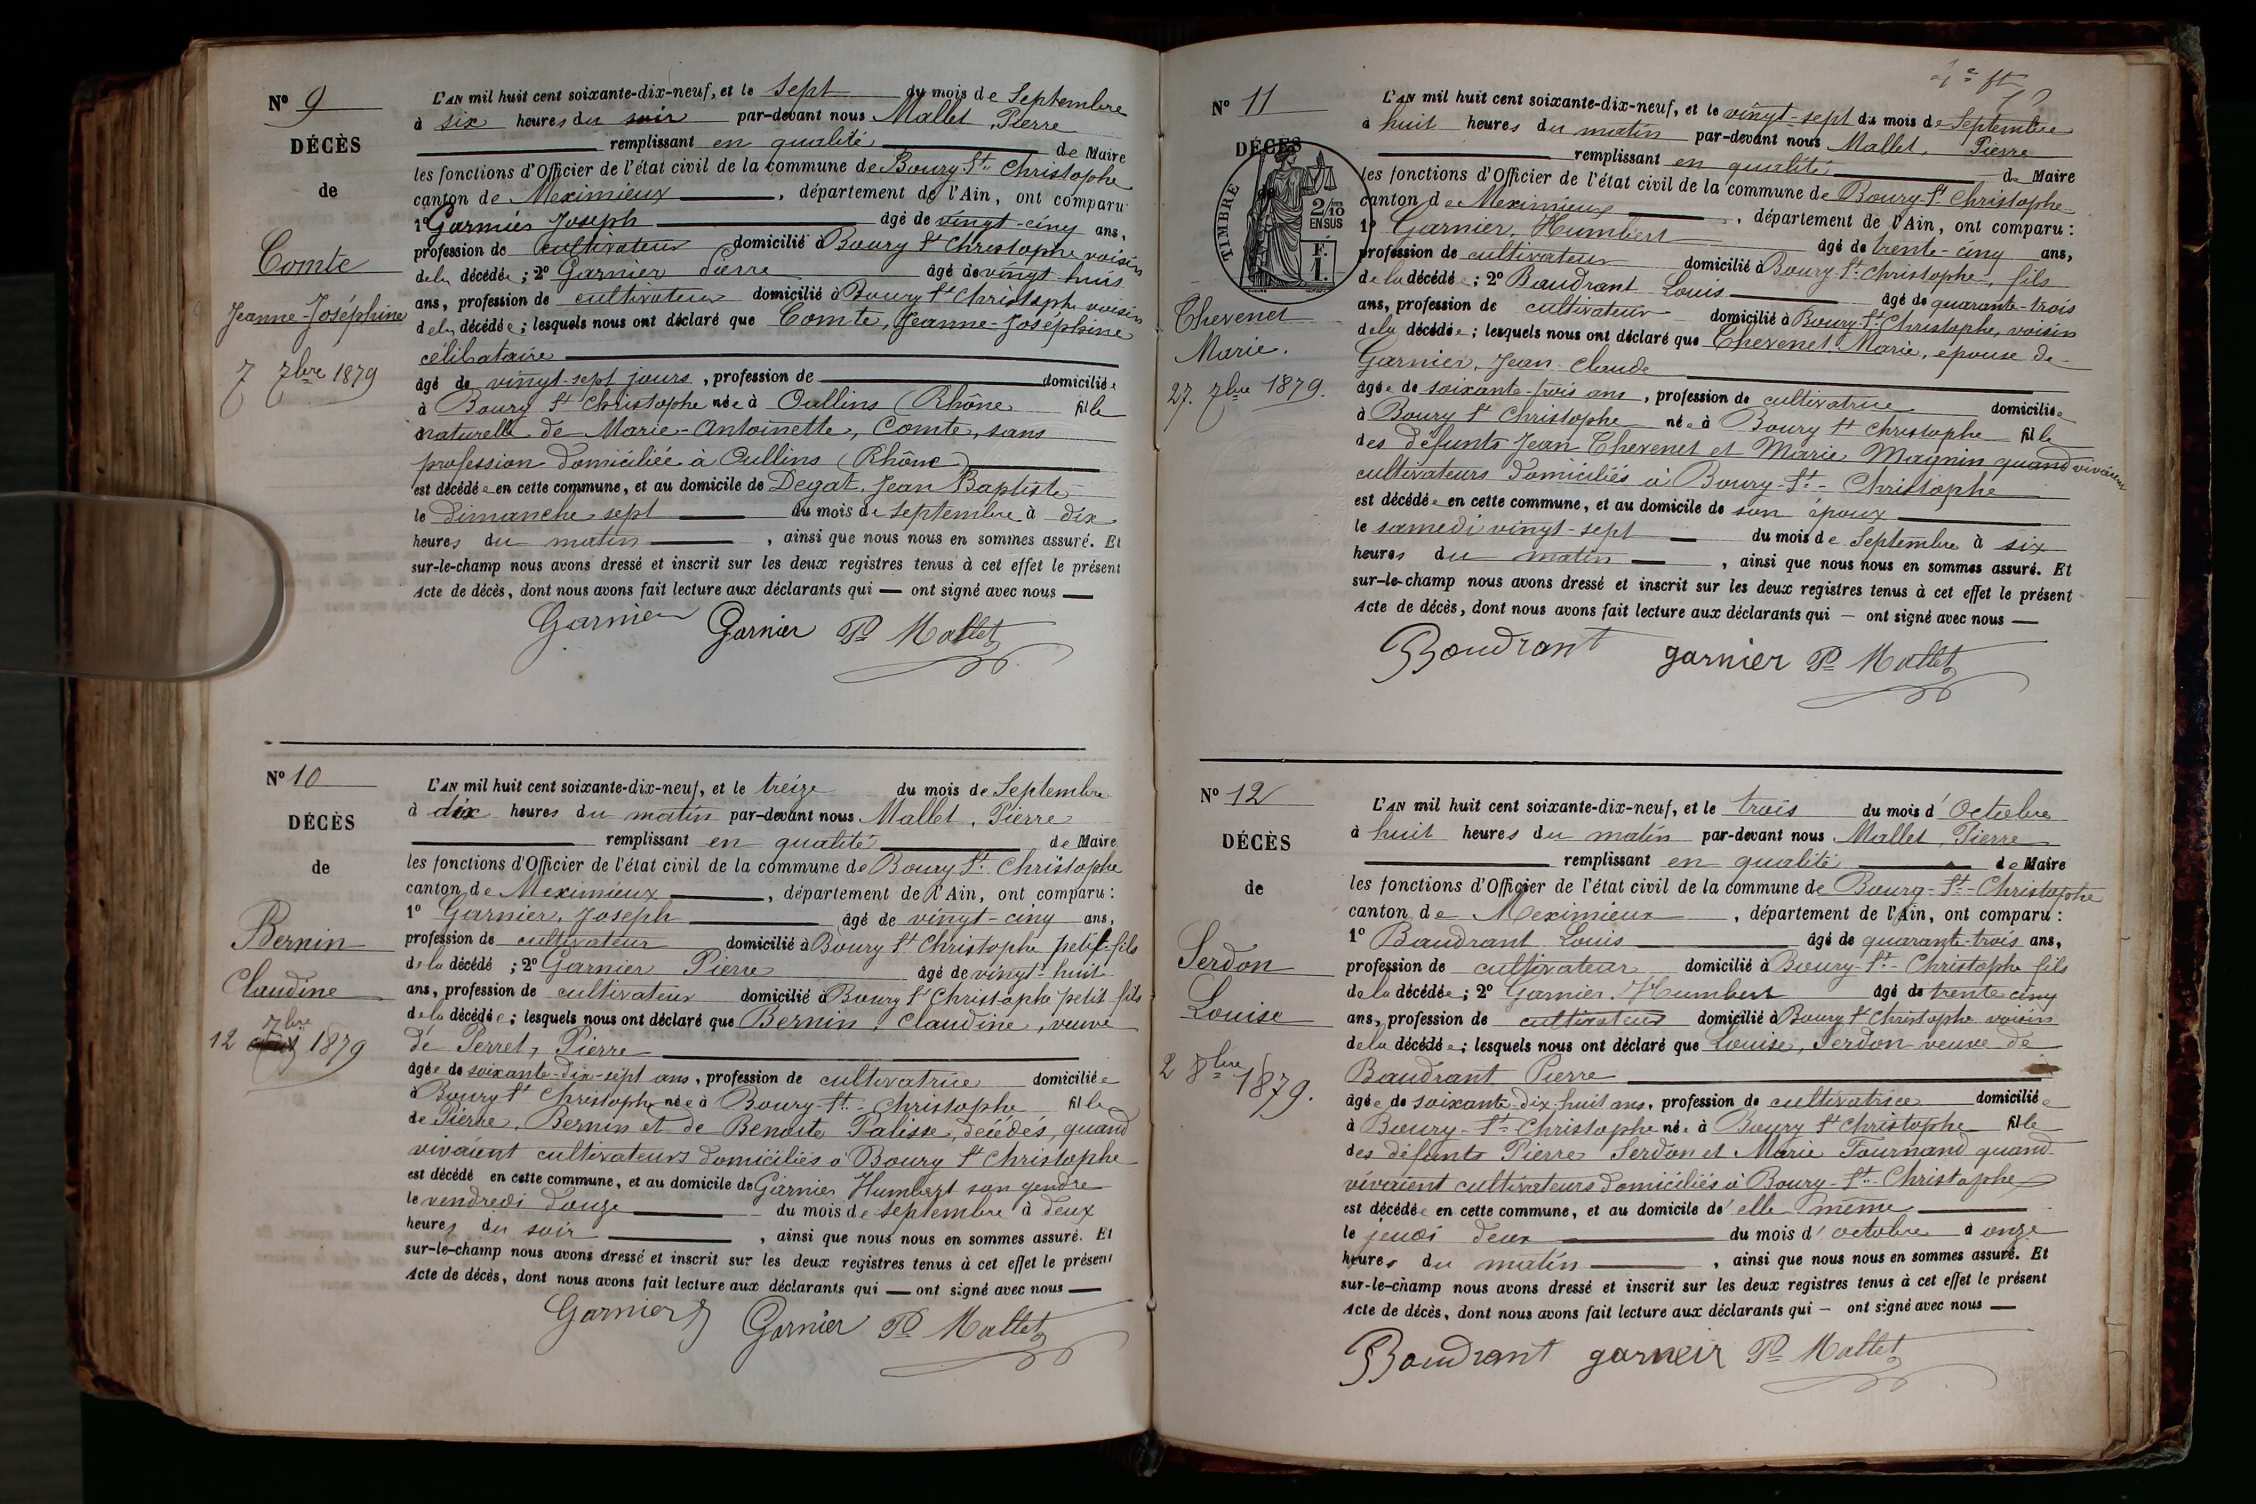 N° 9
DÉCÈS
de
Comte
Jeanne-Joséphine
7 7bre 1879
L'AN mil huit cent soixante-dix-neuf, et le Sept du mois de Septembre
à six heures du soir par-devant nous Mallet, Pierre
remplissant en qualité de Maire
les fonctions d'Officier de l'état civil de la commune de Boury St Christophe
canton de Meximieux, département de l'Ain, ont comparu
1° Garnier Joseph âgé de vingt-cinq ans,
profession de cultivateur domicilié à Boury St Christophe voisin
de la décédée; 2° Garnier Pierre âgé de vingt-huit
ans, profession de cultivateur domicilié à Boury St Christophe voisin
de la décédée; lesquels nous ont déclaré que Comte, Jeanne-Joséphine
célibataire
âgé de vingt-sept jours, profession de domiciliée
à Boury St Christophe née à Oullins (Rhône) fille
naturelle de Marie-Antoinette, Comte, sans
profession domiciliée à Oullins (Rhône)
est décédée en cette commune, et au domicile de Degat, Jean Baptiste
le dimanche sept du mois de Septembre à dix
heures du matin, ainsi que nous nous en sommes assuré. Et
sur-le-champ nous avons dressé et inscrit sur les deux registres tenus à cet effet le présent
Acte de décès, dont nous avons fait lecture aux déclarants qui — ont signé avec nous —
Garnier Garnier P. Mallet
N° 10
DÉCÈS
de
Bernin
Claudine
12 7bre 1879
L'AN mil huit cent soixante-dix-neuf, et le treize du mois de Septembre
à dix heures du matin par-devant nous Mallet, Pierre
remplissant en qualité de Maire
les fonctions d'Officier de l'état civil de la commune de Boury St Christophe
canton de Meximieux, département de l'Ain, ont comparu:
1° Garnier, Joseph âgé de vingt-cinq ans,
profession de cultivateur domicilié à Boury St Christophe petit-fils
de la décédé; 2° Garnier Pierre âgé de vingt-huit
ans, profession de cultivateur domicilié à Boury St Christophe petit fils
de la décédée; lesquels nous ont déclaré que Bernin, Claudine, veuve
de Perret, Pierre
âgée de soixante-dix-sept ans, profession de cultivatrice domiciliée
à Boury St Christophe née à Boury-St-Christophe fille
de Pierre, Bernin et de Benoite Palisse, décédés, quand
vivaient cultivateurs domiciliés à Boury St Christophe
est décédé en cette commune, et au domicile de Garnier Humbert son gendre
le vendredi douze du mois de septembre à deux
heures du soir, ainsi que nous nous en sommes assuré. Et
sur-le-champ nous avons dressé et inscrit sur les deux registres tenus à cet effet le présent
Acte de décès, dont nous avons fait lecture aux déclarants qui — ont signé avec nous —
Garnier Garnier P. Mallet
N° 11
DÉCÈS
TIMBRE
2/10
EN SUS
F.
1.
Thevenet
Marie.
27. 7bre 1879.
L'AN mil huit cent soixante-dix-neuf, et le vingt-sept du mois de Septembre
à huit heures du matin par-devant nous Mallet, Pierre
remplissant en qualité de Maire
les fonctions d'Officier de l'état civil de la commune de Boury St Christophe
canton de Meximieux, département de l'Ain, ont comparu:
1° Garnier, Humbert âgé de trente-cinq ans,
profession de cultivateur domicilié à Boury-St-Christophe, fils
de la décédée; 2° Baudrant Louis âgé de quarante-trois
ans, profession de cultivateur domicilié à Boury-St-Christophe, voisin
de la décédée; lesquels nous ont déclaré que Thevenet, Marie, epouse de
Garnier, Jean Claude
âgée de soixante-trois ans, profession de cultivatrice domiciliée
à Boury St Christophe née à Boury St Christophe fille
des défunts Jean Thevenet et Marie Magnin quand vivaient
cultivateurs domiciliés à Boury-St-Christophe
est décédée en cette commune, et au domicile de son époux
le samedi vingt-sept du mois de Septembre à six
heures du matin, ainsi que nous nous en sommes assuré. Et
sur-le-champ nous avons dressé et inscrit sur les deux registres tenus à cet effet le présent
Acte de décès, dont nous avons fait lecture aux déclarants qui — ont signé avec nous —
Baudrant garnier P. Mallet
N° 12
DÉCÈS
de
Serdon
Louise
2 8bre 1879.
L'AN mil huit cent soixante-dix-neuf, et le trois du mois d'Octobre
à huit heures du matin par-devant nous Mallet, Pierre
remplissant en qualité de Maire
les fonctions d'Officier de l'état civil de la commune de Boury-St-Christophe
canton de Meximieux, département de l'Ain, ont comparu:
1° Baudrant Louis âgé de quarante-trois ans,
profession de cultivateur domicilié à Boury-St-Christophe fils
de la décédée; 2° Garnier, Humbert âgé de trente cinq
ans, profession de cultivateur domicilié à Boury St Christophe voisin
de la décédée; lesquels nous ont déclaré que Louise, Serdon veuve de
Baudrant Pierre
âgée de soixante-dix huit ans, profession de cultivatrice domiciliée
à Boury-St-Christophe née à Boury St Christophe fille
des défunts Pierre Serdon et Marie Fournand quand
vivaient cultivateurs domiciliés à Boury-St-Christophe
est décédée en cette commune, et au domicile d'elle même
le jeudi deux du mois d'octobre à onze
heures du matin, ainsi que nous nous en sommes assuré. Et
sur-le-champ nous avons dressé et inscrit sur les deux registres tenus à cet effet le présent
Acte de décès, dont nous avons fait lecture aux déclarants qui — ont signé avec nous —
Baudrant garneir P. Mallet